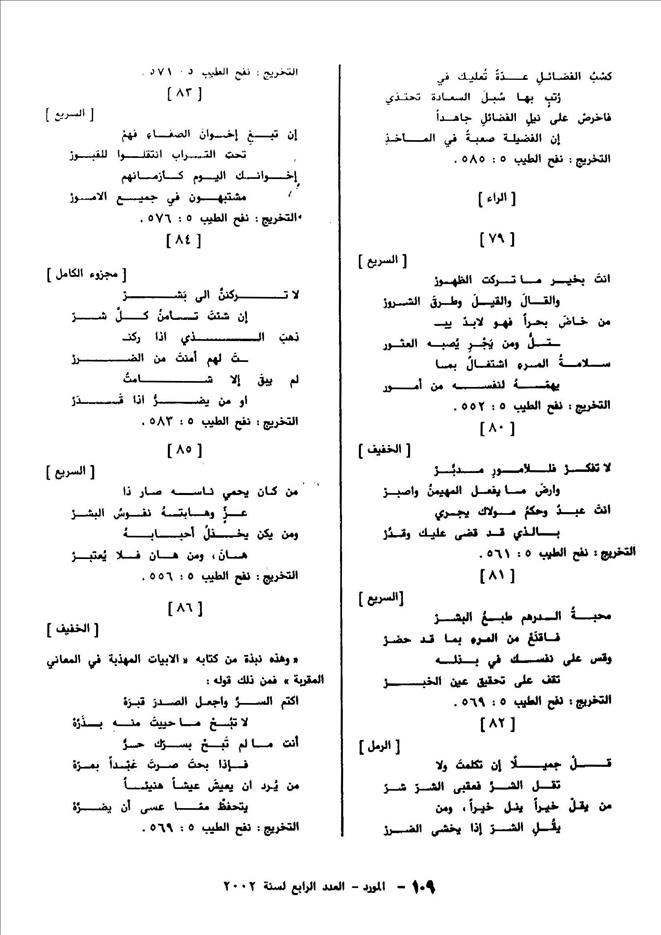 كسْبُ الفضائلِ عـدّةٌ تُعليك في
رُتبٍ بها سُبلَ السعادة تحتذي
فاحرصْ على نيلِ الفضائلِ جاهداً
إن الفضيلة صعبةٌ في المـاخذِ
التخريج : نفح الطيب ٥ : ٥٨٥ .
[ الراء ]
[ ٧٩ ]
[ السريع ]
انتَ بخيـر مـا تـركت الظهـورْ
والقالَ والقيلَ وطرقَ الشرورْ
من خاضَ بحراً فهو لابدّ يبـ
ـتلُّ ومن يَجْرِ يُصبه العثور
سـلامـةُ المرءِ اشتغالٌ بمـا
يهمّـهُ لنفسـه من أمـور
التخريج : نفح الطيب ٥ : ٥٥٢ .
[ ٨٠ ]
[ الخفيف ]
لا تفكـرْ فلـلأمـورِ مـدبّـرْ
وارضَ مـا يفعـل المهيمنُ واصبرْ
انتَ عبـدٌ وحكمُ مـولاك يجـري
بـالـذي قـد قضى عليك وقدّرْ
التخريج : نفح الطيب ٥ : ٥٦١.
[ ٨١ ]
[السريع ]
محبـةُ الـدرهم طبـعُ البشـرْ
فـاقنَعْ من المرءِ بما قد حضرْ
وقس على نفسـك في بـذلـه
تقف على تحقيق عين الخبـرْ
التخريج : نفح الطيب ٥ : ٥٦٩.
[ ٨٢ ]
[ الرمل ]
قـلْ جميـلًا إن تكلمتَ ولا
تقـل الشرَّ فعقبى الشرّ شرّ
من يقلْ خيراً ينل خيراً ، ومن
يقُلِ الشـرّ إذا يخشى الضـررْ
التخريج : نفح الطيب ٥ : ٥٧١ .
[ ٨٣ ]
[ السريع ]
إن تبـغِ إخـوانَ الصفـاءِ فهمْ
تحتَ التـراب انتقلـوا للقبورْ
إخـوانـك اليـوم كـأزمـانهم
مشتبهـون في جميـع الامورْ
التخريج : نفح الطيب ٥ : ٥٧٦ .
[ ٨٤ ]
[ مجزوء الكامل ]
لا تـركننَّ الى بَشـرْ
إن شئتَ تـامنُ كـلَّ شـرّ
ذهبَ الـذي اذا ركنـ
ـتَ لهم أمنتَ من الضـررْ
لم يبقَ إلا شـامتٌ
او من يضـرُّ اذا قَـدَرْ
التخريج : نفح الطيب ٥ : ٥٨٣.
[ ٨٥ ]
[ السريع ]
من كـان يحمي ناسـه صار ذا
عـزٍّ وهـابتـهُ نفـوسُ البشـرْ
ومن يكن يخـذلُ أحبـابـهُ
هـانَ، ومن هـان فـلا يُعتبـرْ
التخريج : نفح الطيب ٥ : ٥٥٦.
[ ٨٦ ]
[ الخفيف ]
« وهذه نبذة من كتابه « الابيات المهذبة في المعاني
المقربة » فمن ذلك قوله :
اكتم السـرَّ واجعل الصدرَ قبرَهْ
لا تبُـحْ مـا حييتَ منـه بـذرَّهْ
أنت مـا لم تَبـحْ بسرّك حـرٌّ
فـإذا بحتَ صرتَ عَبْـداً بمرّهْ
من يُرد ان يعيش عيشاً هنيئـاً
يتحفظْ ممّـا عسى أن يضـرَّهْ
التخريج : نفح الطيب ٥ : ٥٦٩ .
١٠٩ - المورد - العدد الرابع لسنة ٢٠٠٢